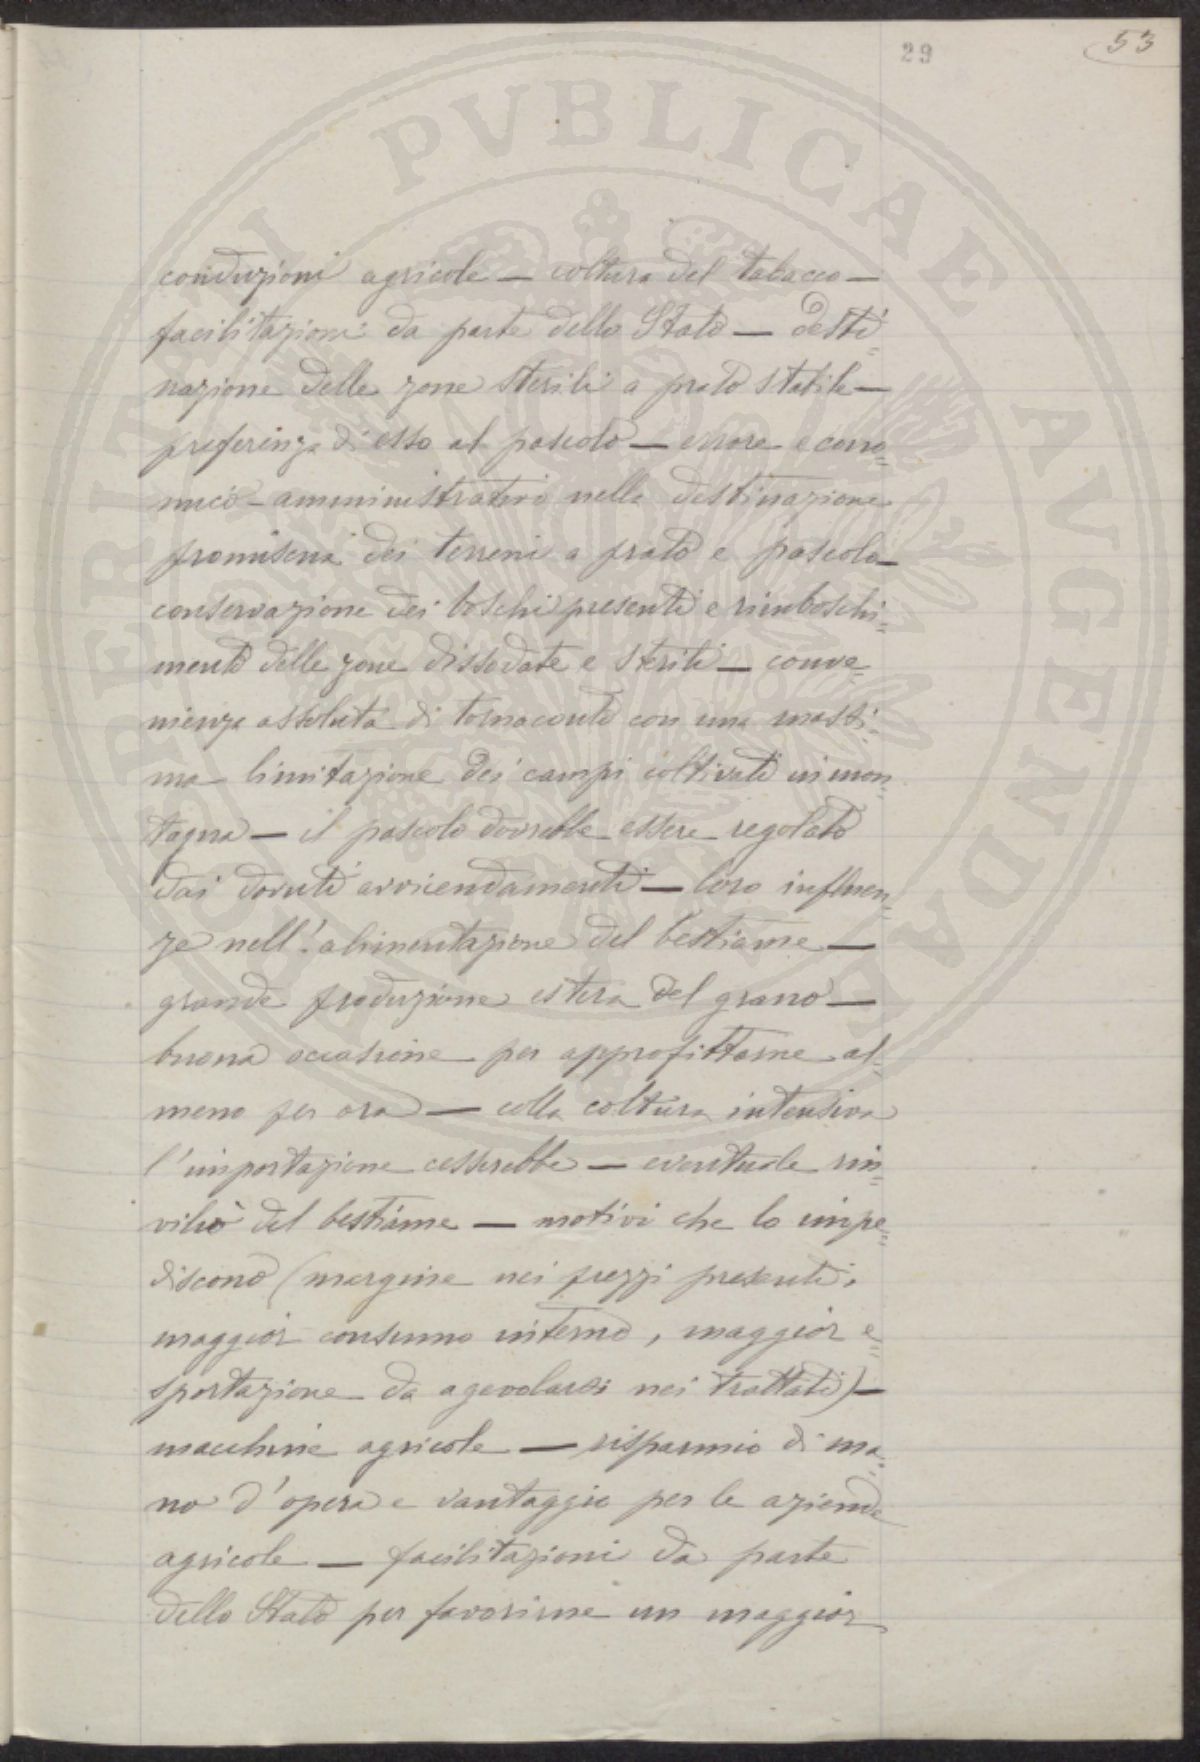 29
53
conduzioni agricole — coltura del tabacco —
facilitazioni da parte dello Stato — desti=
nazione delle zone sterili a prato stabile —
preferenza di esso al pascolo — errore econo=
mico-amministrativo nella destinazione
promiscua dei terreni a prato e pascolo —
conservazione dei boschi presenti e rimboschi=
mento delle zone dissodate e sterili — conve=
nienza assoluta di tornaconto con una massi=
ma limitazione dei campi coltivati in mon=
tagna — il pascolo dovrebbe essere regolato
dai dovuti avvicendamenti — loro influen=
ze nell'alimentazione del bestiame —
grande produzione estera del grano —
buona occasione per approfittarne al=
meno per ora — colla coltura intensiva
l'importazione cesserebbe — eventuale rin=
vilio del bestiame — motivi che lo impe=
discono (margine nei prezzi presenti,
maggior consumo interno, maggior e=
sportazione da agevolarsi nei trattati) —
macchine agricole — risparmio di ma=
no d'opera e vantaggio per le aziende
agricole — facilitazioni da parte
dello Stato per favorirne un maggior
PERITATI PVBLICAE AVGENDAE